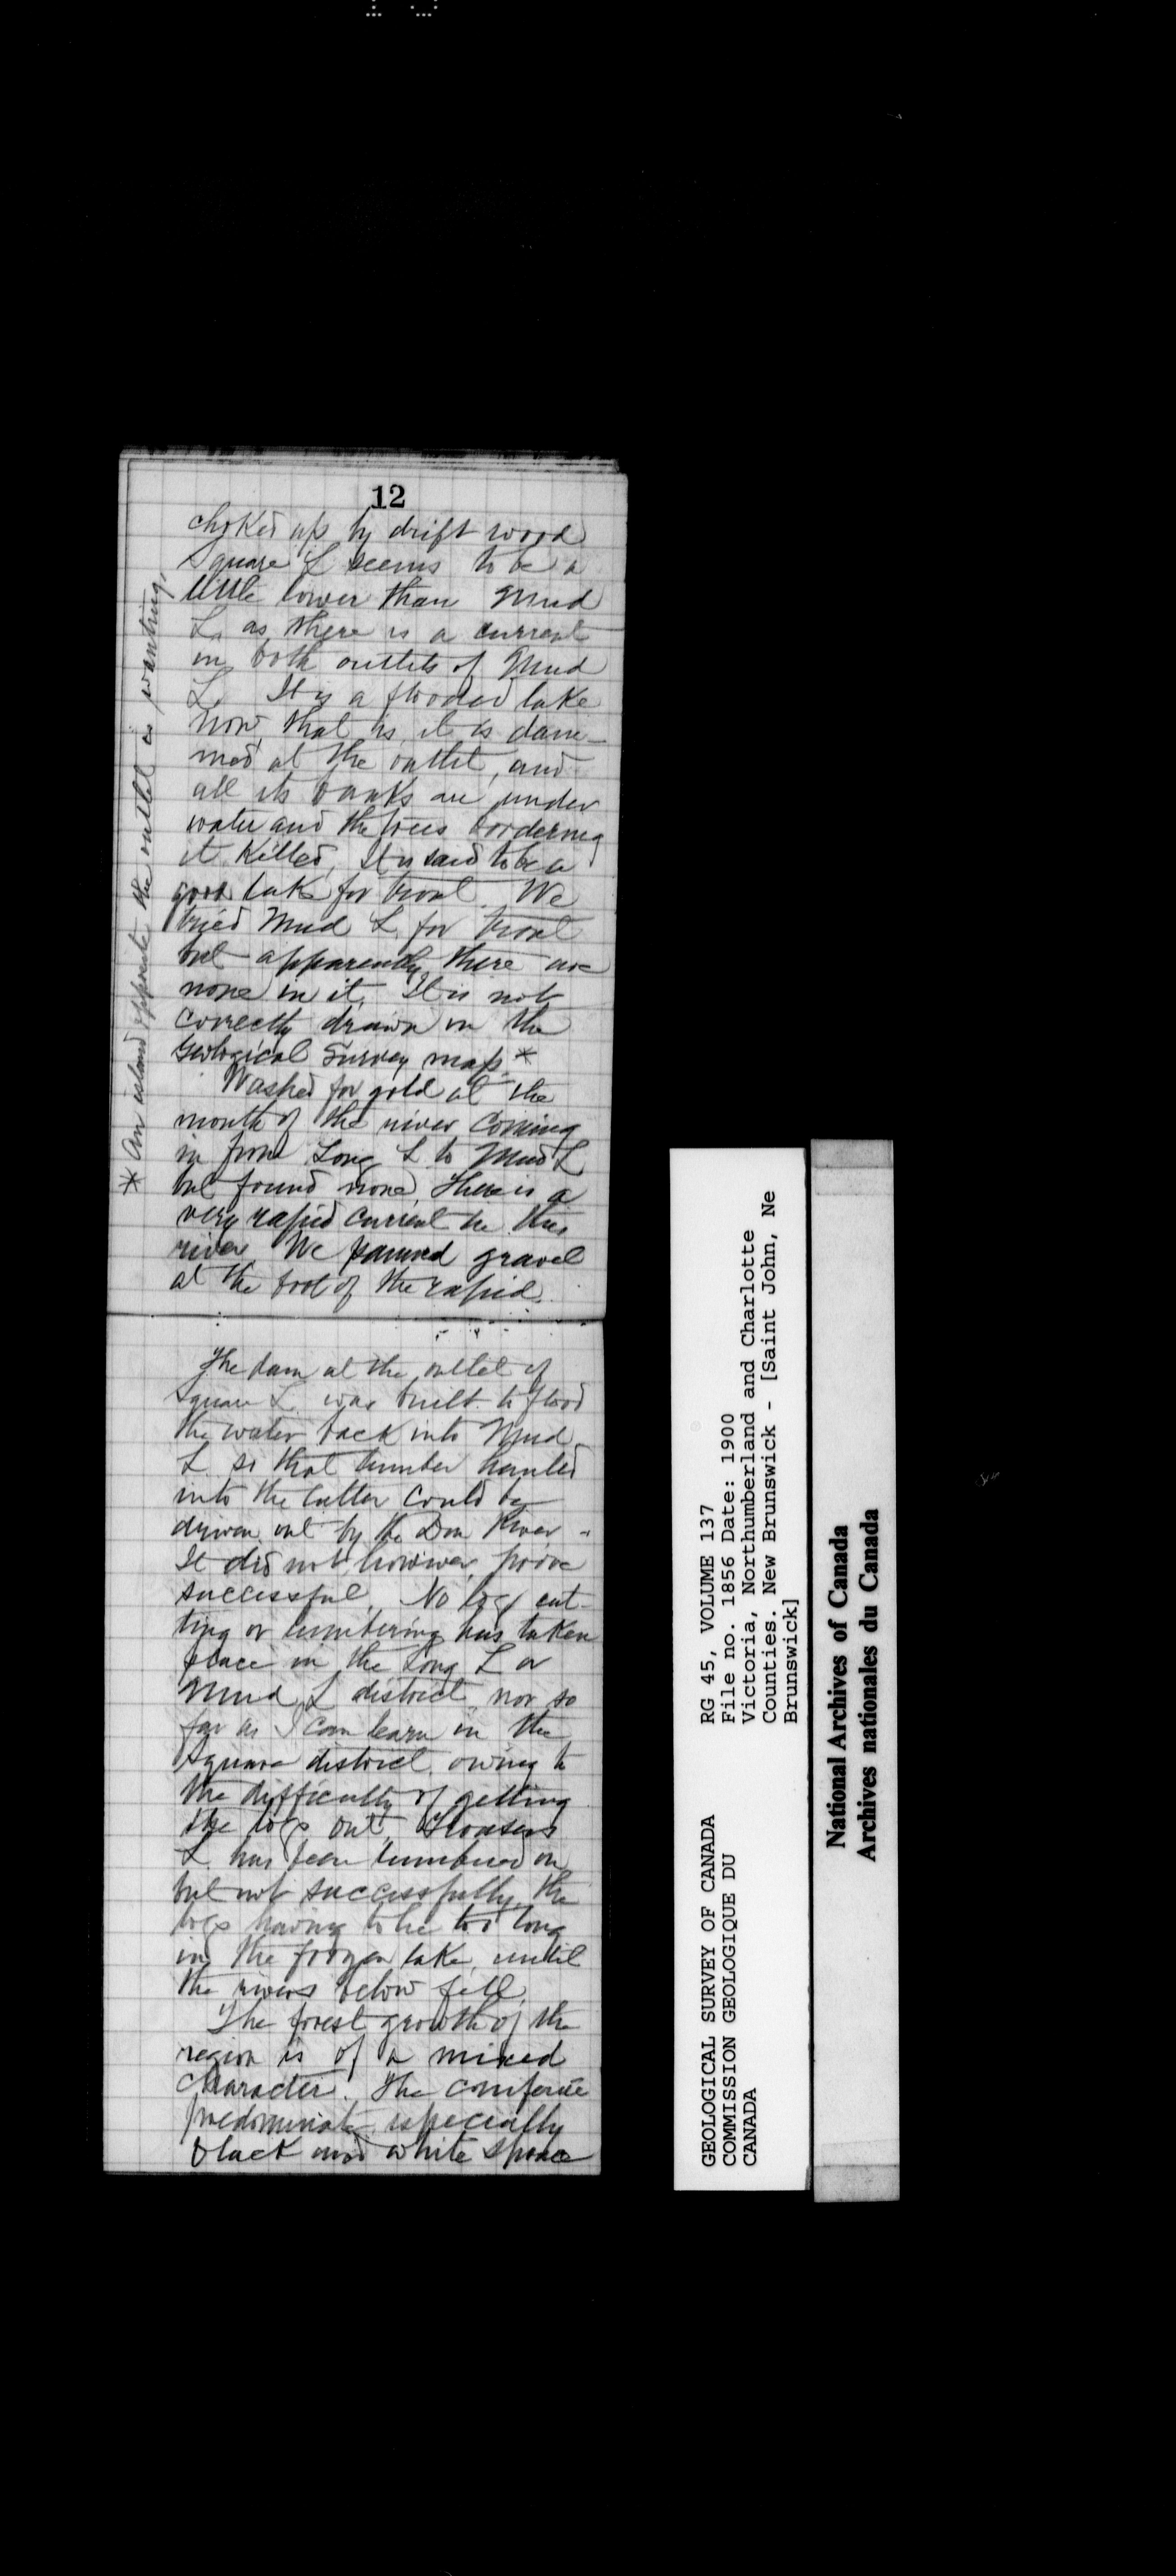 12
choked up by drift wood
Square L seems to be a
little lower than Mud
L. as there is a current
in both outlets of Mud
L. It is a flooded lake
now, that is, it is dam-
med at the outlet, and
all its banks are under
water and the trees bordering
it killed, It is said to be a
good lake for trout. We
tried Mud L. for trout
but apparently there are
none in it. It is not
correctly drawn on the
Geological Survey map.*
Washed for gold at the
mouth of the river coming
in from Long L to Mud L
but found none, There is a
very rapid current in this
river We panned gravel
at the foot of the rapid.
* An island opposite the outlet is wanting.
The dam at the outlet of
Square L. was built to flood
the water back into Mud
L. so that lumber hauled
into the latter could be
driven out by the Don River -
It did not, however, prove
successful. No log cut-
ting or lumbering has taken
place in the Long L or
Mud L district, nor so
far as I can learn in the
Square district, owing to
the difficulty of getting
the logs out,
L. has been lumbered on
but not successfully, the
logs having to lie too long
in the frozen lake, until
the rivers below fell.
The forest growth of the
region is of a mixed
character. The coniferae
predominate especially
black and white spruce
GEOLOGICAL SURVEY OF CANADA
COMMISSION GEOLOGIQUE DU
CANADA
RG 45, VOLUME 137
File no. 1856 Date: 1900
Victoria, Northumberland and Charlotte
Counties. New Brunswick - [Saint John, Ne
Brunswick]
National Archives of Canada
Archives nationales du Canada